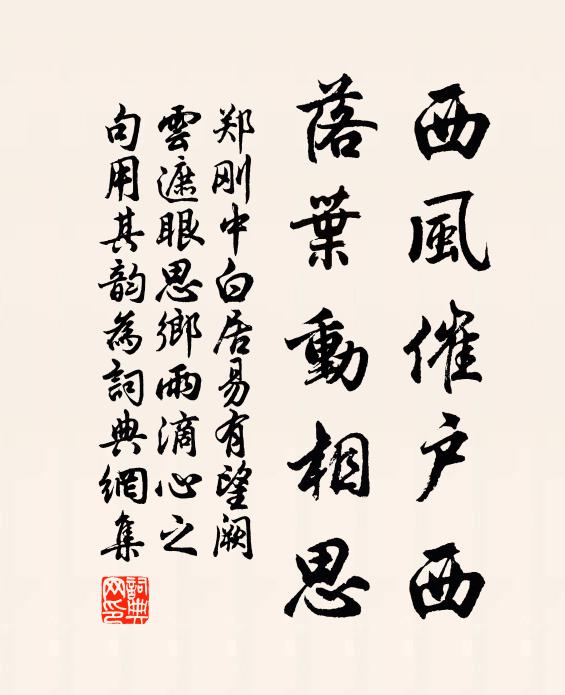 西風催户西
落葉動相思
郑刚中白居易有望阙
雲遮眼思鄉雨滴心之
句用其韵為詞典網集
詞典网印